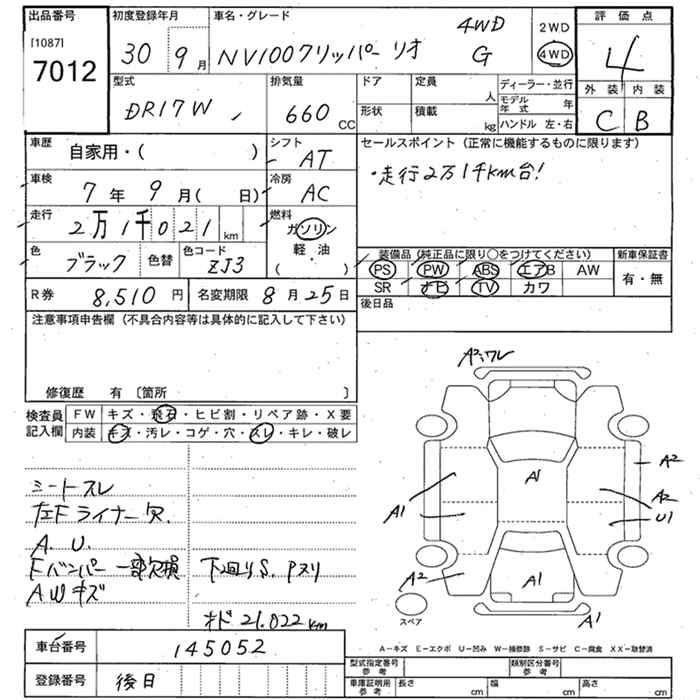 出品番号 初度登録年月 車名・グレード 評価点
[1087]
7012
30 9月 NV100クリッパー リオ 4WD G
2WD
4WD
4
外装 内装
C B
型式 排気量 ドア 定員 人 ディーラー・並行
DR17W 660 CC
形状 積載 kg モデル年式 年
ハンドル 左・右
車歴 自家用・( )
シフト AT
セールスポイント(正常に機能するものに限ります)
・走行2万1千km台!
車検 7年 9月( 日)
冷房 AC
走行 2万1千021km
燃料 ガソリン
軽・油
( )
色 ブラック 色替 色コード ZJ3
装備品(純正品に限り○をつけてください) 新車保証書
PS PW ABS エアB AW
SR ナビ TV カワ
有・無
R券 8,510円 名変期限 8月25日
後日品
注意事項申告欄(不具合内容等は具体的に記入して下さい)
修復歴 有〔箇所 〕
検査員記入欄
FW キズ・飛石・ヒビ割・リペア跡・X要
内装 キズ・汚レ・コゲ・穴・スレ・キレ・破レ
シートスレ
左Fライナー欠.
A.U.
Fバンパー一部欠損 下廻りS.Pヌリ
AWキズ
オド21.022km
A2,ワレ
A2
A1
A1
A2
U1
A2
A1
A1
スペア
A-キズ E-エクボ U-凹み W-補修跡 S-サビ C-腐食 XX-取替済
車台番号 145052
登録番号 後日
型式指定番号参考 類別区分番号参考
車庫証明用参考 長さ cm 幅 cm 高さ cm